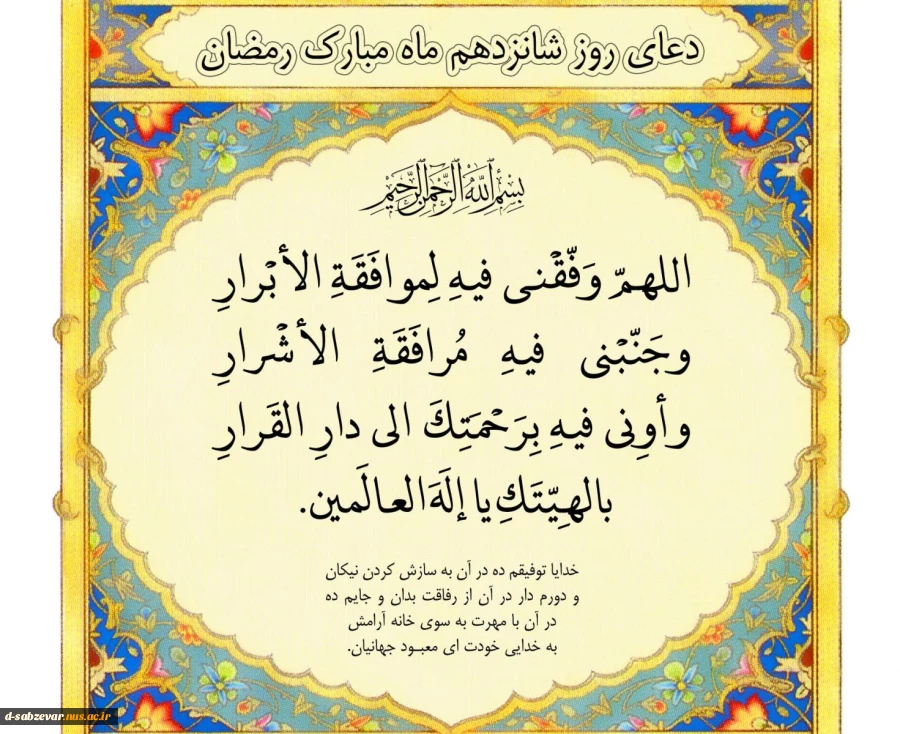 دعای روز شانزدهم ماه مبارک رمضان
بِسْمِ ٱللَّهِ ٱلرَّحْمَٰنِ ٱلرَّحِيمِ
اللهمّ وَفّقْنی فیهِ لِموافَقَةِ الأبْرارِ
وجَنّبْنی فیهِ مُرافَقَةِ الأشْرارِ
وأوِنی فیهِ بِرَحْمَتِكَ الی دارِ القَرارِ
بالهِیّتَكِ یا إلَهَ العالَمین.
خدایا توفیقم ده در آن به سازش کردن نیکان
و دورم دار در آن از رفاقت بدان و جایم ده
در آن با مهرت به سوی خانه آرامش
به خدایی خودت ای معبـود جهانیان.
d-sabzevar.nus.ac.ir